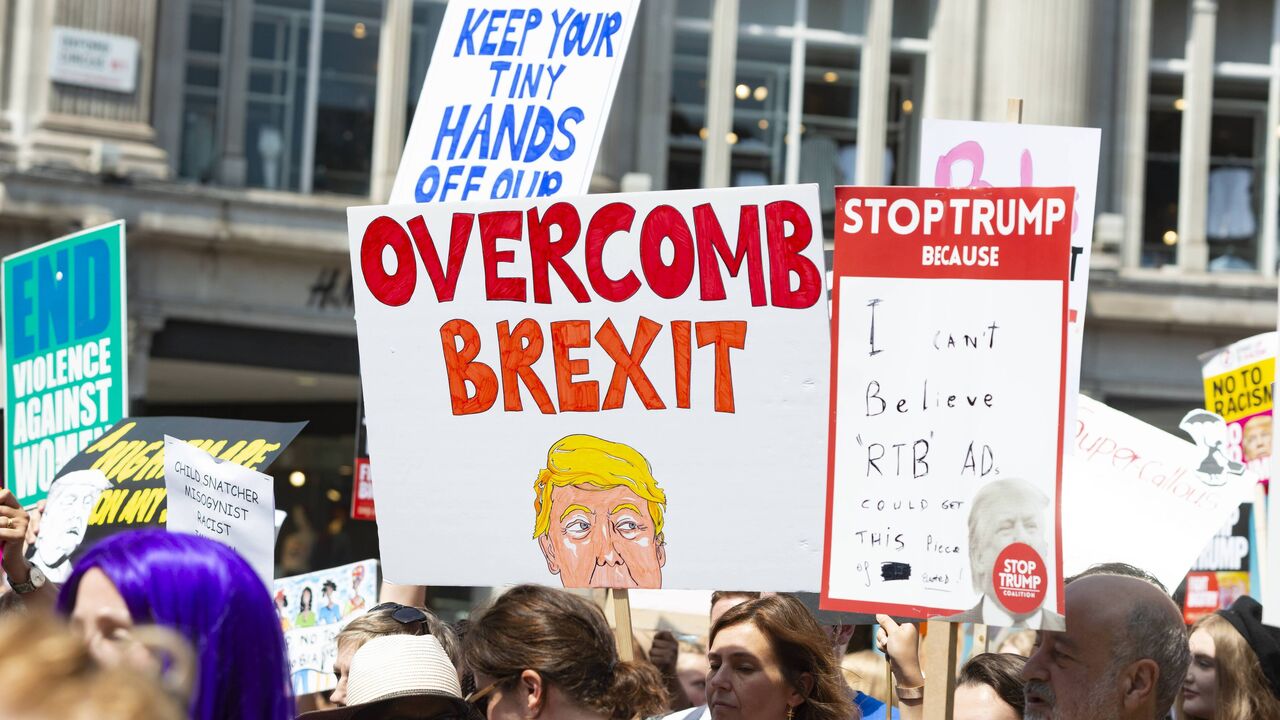 KEEP YOUR
TINY
HANDS
OFF OUR
OVERCOMB
BREXIT
STOP TRUMP
BECAUSE
I CAN'T
Believe
"RTB" AD.
COULD GET
THIS Piece
of
STOP
TRUMP
COALITION
END
VIOLENCE
AGAINST
WOMEN
CHILD SNATCHER
MISOGYNIST
RACIST
H&M
Super Callous
NO TO
RACISM
TRUMP
NO